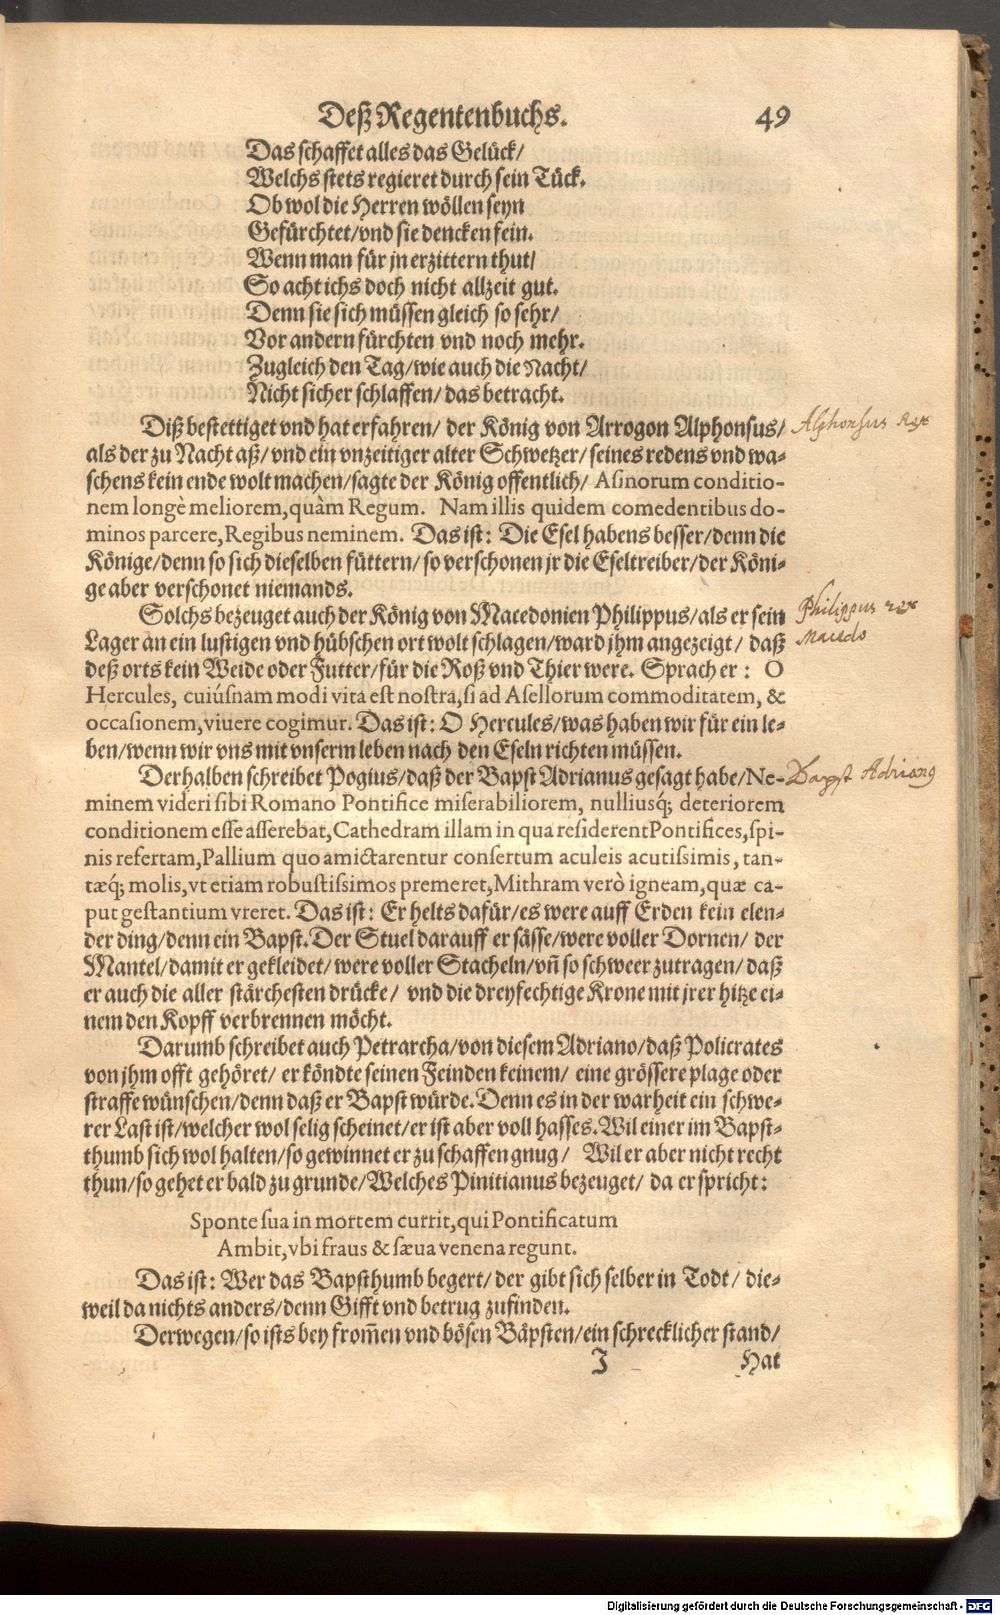 Deß Regentenbuchs. 49
Das schaffet alles das Gelück/
Welchs stets regieret durch sein Tück.
Ob wol die Herren wöllen seyn
Gefürchtet/vnd sie dencken fein.
Wenn man für jn erzittern thut/
So acht ichs doch nicht allzeit gut.
Denn sie sich müssen gleich so sehr/
Vor andern fürchten vnd noch mehr.
Zugleich den Tag/wie auch die Nacht/
Nicht sicher schlaffen/das betracht.
Diß bestettiget vnd hat erfahren/ der König von Arrogon Alphonsus/
Alphonsus Rex
als der zu Nacht aß/vnd ein vnzeitiger alter Schwetzer/seines redens vnd wa-
schens kein ende wolt machen/sagte der König offentlich/ Asinorum conditio-
nem longè meliorem,quàm Regum. Nam illis quidem comedentibus do-
minos parcere,Regibus neminem. Das ist: Die Esel habens besser/denn die
Könige/denn so sich dieselben füttern/so verschonen jr die Eseltreiber/der Köni-
ge aber verschonet niemands.
Solchs bezeuget auch der König von Macedonien Philippus/als er sein
Philippus rex
Lager an ein lustigen vnd hübschen ort wolt schlagen/ward jhm angezeigt/ daß
deß orts kein Weide oder Futter/für die Roß vnd Thier were. Sprach er: O
Hercules, cuiúsnam modi vita est nostra,si ad Asellorum commoditatem, &
occasionem,viuere cogimur. Das ist: O Hercules/was haben wir für ein le-
ben/wenn wir vns mit vnserm leben nach den Eseln richten müssen.
Derhalben schreibet Pogius/daß der Bapst Adrianus gesagt habe/Ne-
Bapst Adrianus
minem videri sibi Romano Pontifice miserabiliorem, nulliusq́; deteriorem
conditionem esse asserebat,Cathedram illam in qua residerent Pontifices,spi-
nis refertam,Pallium quo amictarentur consertum aculeis acutissimis, tan-
tæq́; molis,vt etiam robustissimos premeret,Mithram verò igneam,quæ ca-
put gestantium vreret. Das ist: Er helts dafür/es were auff Erden kein elen-
der ding/denn ein Bapst.Der Stuel darauff er sässe/were voller Dornen/ der
Mantel/damit er gekleidet/were voller Stacheln/vñ so schweer zutragen/daß
er auch die aller stärchesten drücke/ vnd die dreyfechtige Krone mit jrer hitze ei-
nem den Kopff verbrennen möcht.
Darumb schreibet auch Petrarcha/von diesem Adriano/daß Policrates
von jhm offt gehöret/ er köndte seinen Feinden keinem/ eine grössere plage oder
straffe wünschen/denn daß er Bapst würde.Denn es in der warheit ein schwe-
rer Last ist/welcher wol selig scheinet/er ist aber voll hasses.Wil einer im Bapst-
thumb sich wol halten/so gewinnet er zu schaffen gnug/ Wil er aber nicht recht
thun/so gehet er bald zu grunde/Welches Pinitianus bezeuget/ da er spricht:
Sponte sua in mortem currit,qui Pontificatum
Ambit,vbi fraus & sæua venena regunt.
Das ist: Wer das Bapsthumb begert/der gibt sich selber in Todt/ die-
weil da nichts anders/denn Gifft vnd betrug zufinden.
Derwegen/so ists bey from̃en vnd bösen Bäpsten/ein schrecklicher stand/
J Hat
Digitalisierung gefördert durch die Deutsche Forschungsgemeinschaft - DFG